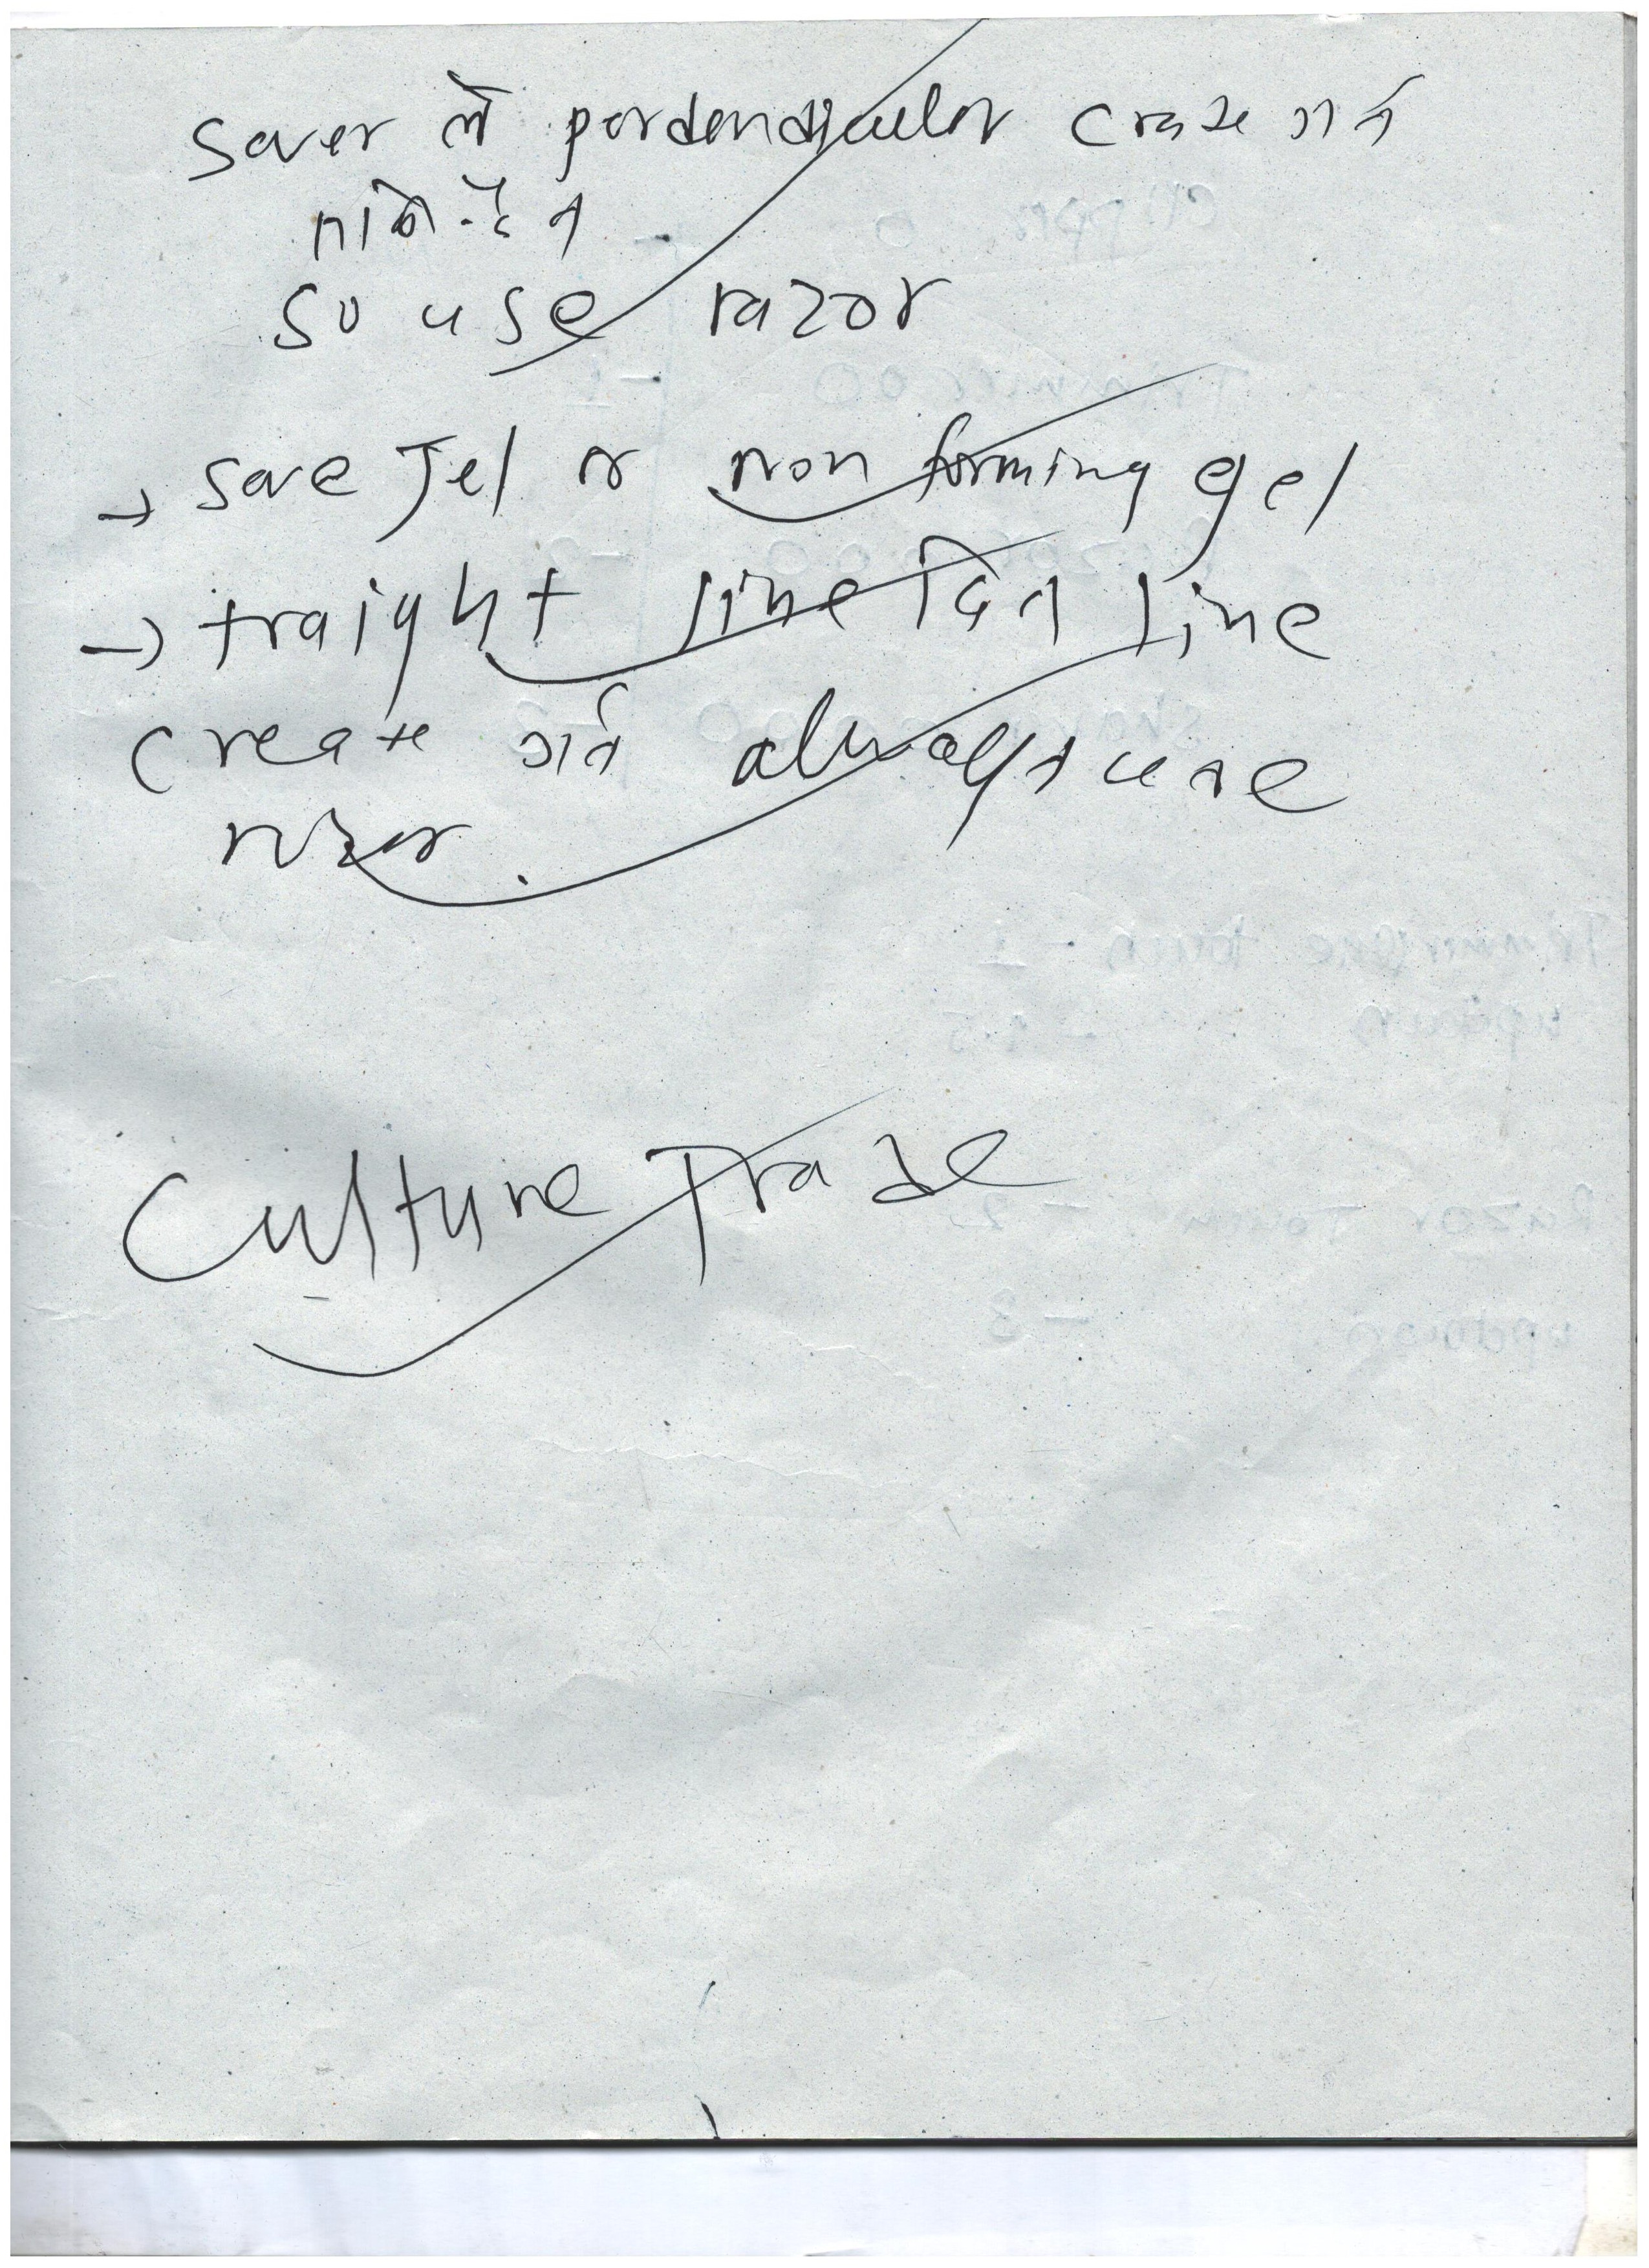 saver ले perdendiculor crate गर्न
सकिन्न
so use razor
→ save Jel or non forming gel
→ traight line का line
create गर्न always use
razor.
Culture Trade